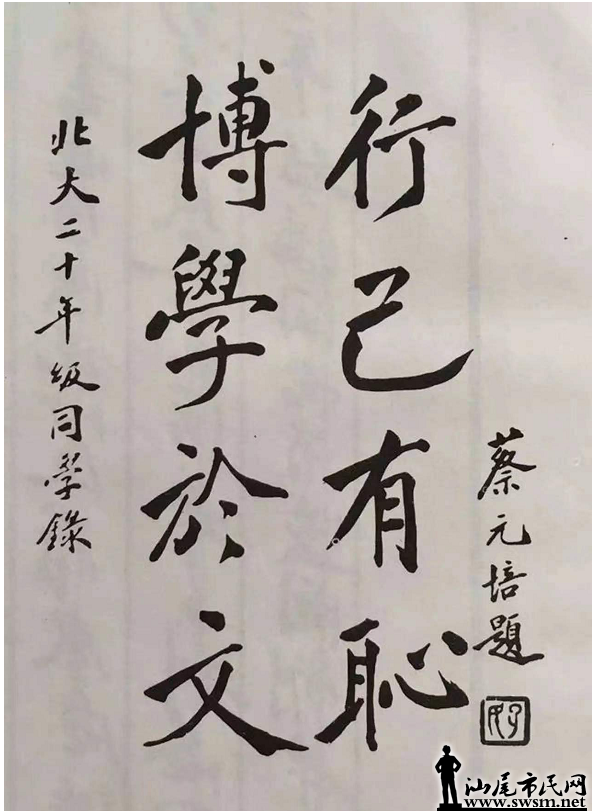 北大二十年級同學錄
博學於文
行己有恥
蔡元培題
孑民
汕尾市民网
www.swsm.net